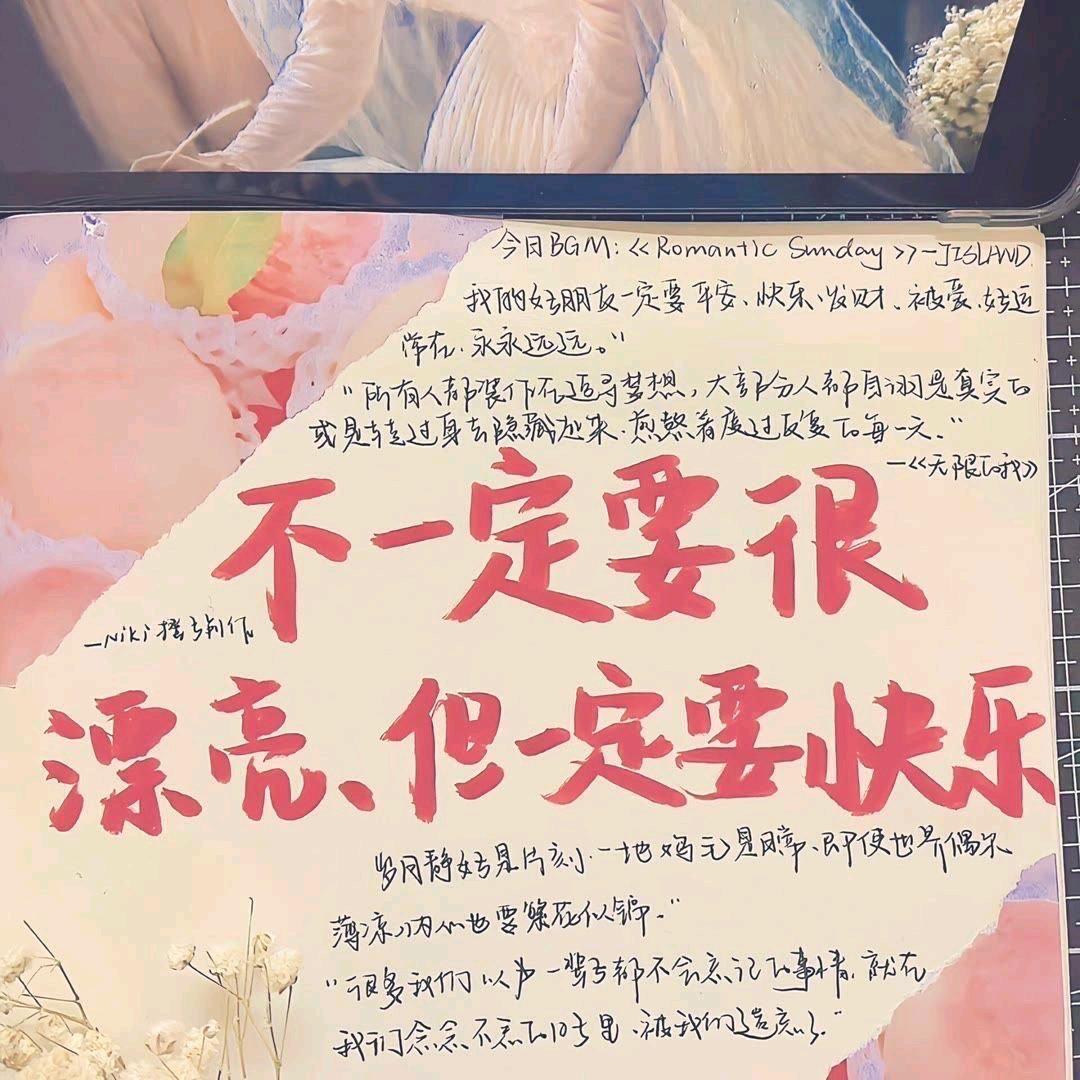 今日BGM:《Romantic Sunday》—JISLAND
我的好朋友一定要平安、快乐、发财、被爱、好运
常在、永永远远。"
"所有人都装作不追寻梦想,大部分人都自诩是真实的
或是走过身去隐藏起来、煎熬着度过反复的每一天。"
—《无限的我》
不一定要很
—Niki撞
漂亮、但一定要快乐
岁月静好是片刻、一地鸡毛是日常、即便世界偶尔
薄凉、内心也要繁花似锦。"
"很多我们以为一辈子都不会忘记的事情,就在
我们念念不忘的日子里、被我们遗忘了。"